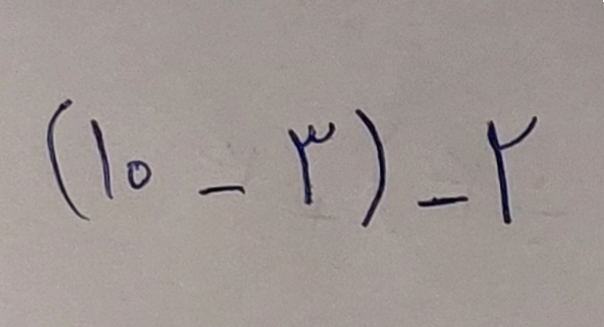 (۱۰ - ۳) - ۲